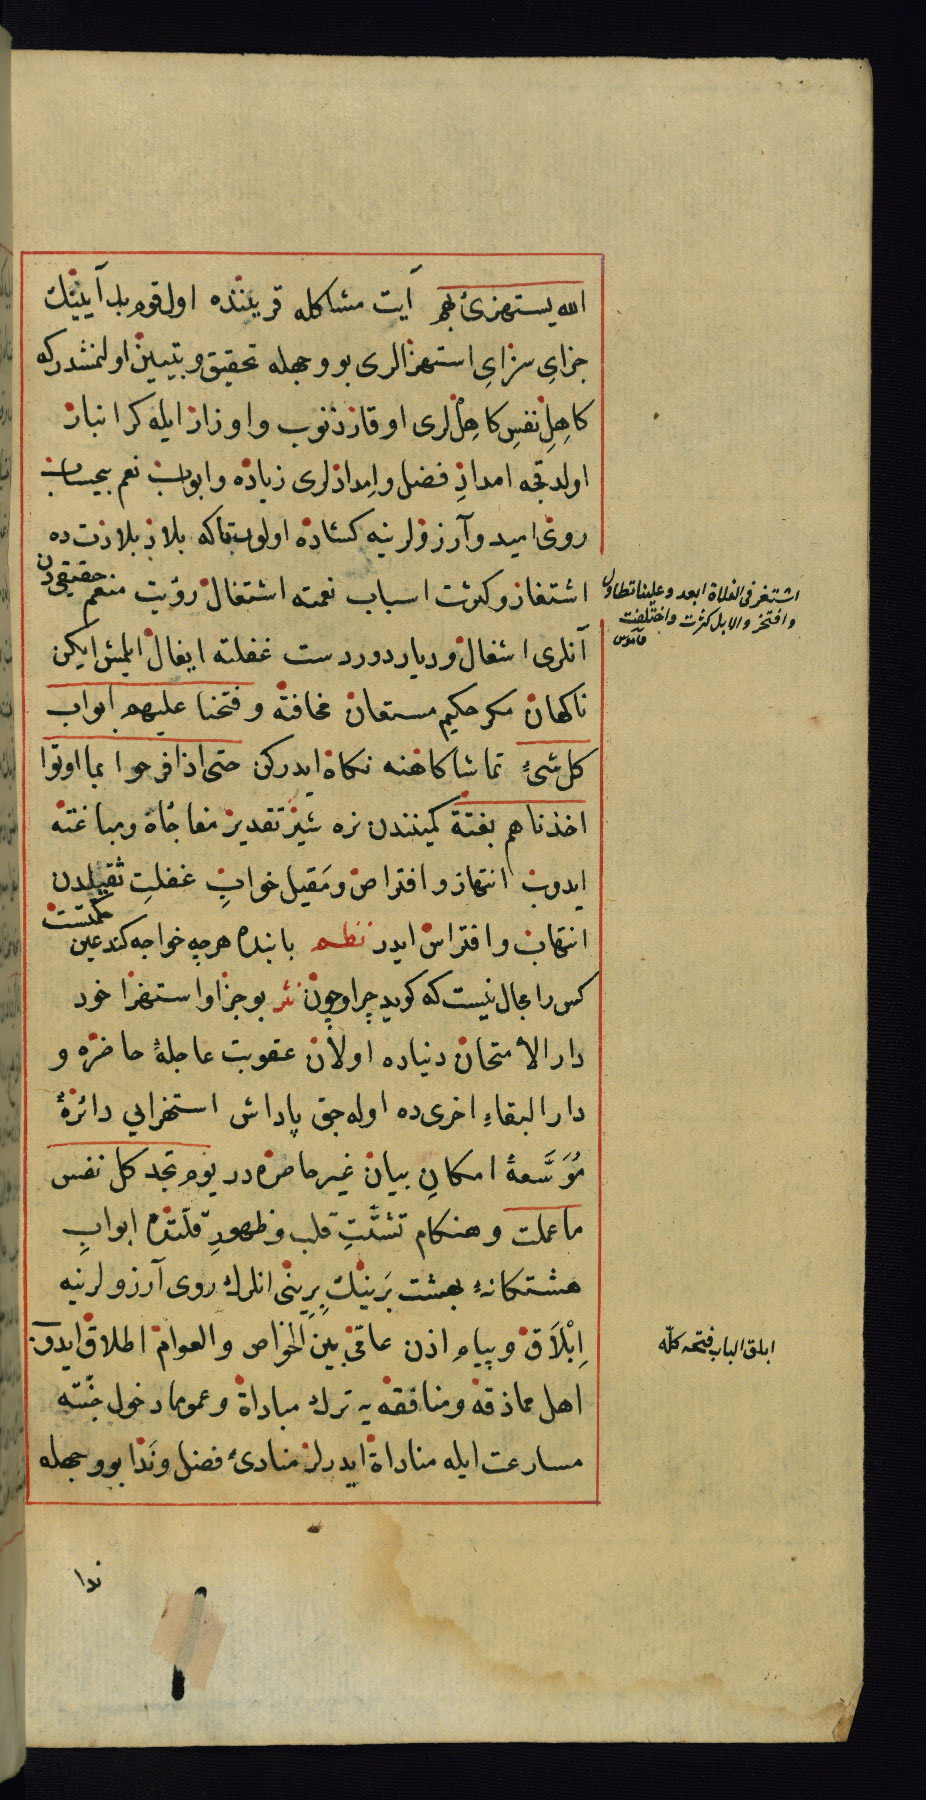 الله يستهزئ بهم آيت مشاكله قريننده اول قوم بد آيينك
جزاى سزاى استهزالرى بو وجهله تحقيق و تبيين اولنمشدر كه
كاهِلِ نفسِ كاهِلْ لرى اوقار ذنوب و اوزار ايله كرانبار
اولدقجه امدادِ فضل و اِمدادلرى زياده و ابواب نعم بيحساب
روى اميد و آرزولرينه كشاده اولوب تا كه بلاد بلادت ده
اشتغار و كثرت اسباب نعمته اشتغال رؤيت منعم حقيقى دن
آنلرى اشغال و ديار دوردست غفلته ايغال ايلمش ايكن
ناكهان مكر حكيم مستعان مخافتة و فتحنا عليهم ابواب
كل شىء تماشاكاهنه نكاه ايدركن حتى اذا فرحوا بما اوتوا
اخذناهم بغتة كمينندن نره شير تقدير مفاجأة و مباغته
ايدوب انتهاز و افتراص و مَقيل خوابِ غفلتِ ثقيلدن
انتهاب و افتراس ايدر نظم با بنده هرچه خواجه كند عين حكمتست
كس را مجال نيست كه كويد چرا و چون نثر بو جزا و استهزا خود
دار الامتحان دنياده اولان عقوبت عاجلهٔ حاضره و
دار البقاءِ اخرى ده اوله جق پاداش استهزايى دائرهٔ
مُوَسَّعهٔ امكانِ بيان غير حاضره در يوم تجد كل نفس
ما عملت و هنكام تشتّتِ قلب و ظهورِ قلّتده ابوابِ
هشتكانهٔ بهشت بَرينك بِرِينى انلرك روى آرزولرينه
اِبْلَاق و پيام اذن عامّى بين الخواص و العوام اطلاق ايدوب
اهل مماذقه و منافقه يه ترك مباراة و عموما دخول جنّته
مسارعت ايله مناداة ايدرلر منادئ فضل و نَدا بو وجهله
اشتغر فى الفلاة ابعد و علينا تطاول
و افتخر و الابل كثرت و اختلفت
قاموس
ابلق الباب فتحه كلّه
ندا